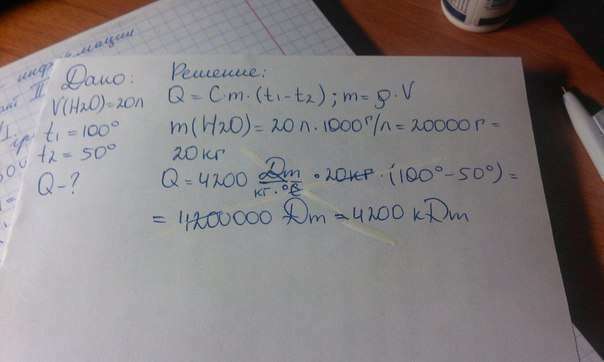 Дано:
V(H2O)=20л
t1=100°
t2=50°
Q-?
Решение:
Q=C·m·(t1-t2); m=ρ·V
m(H2O)=20л·1000г/л=20000г=
20кг
Q=4200 Дж/кг·°C ·20кг·(100°-50°)=
=4200000 Дж=4200 кДж